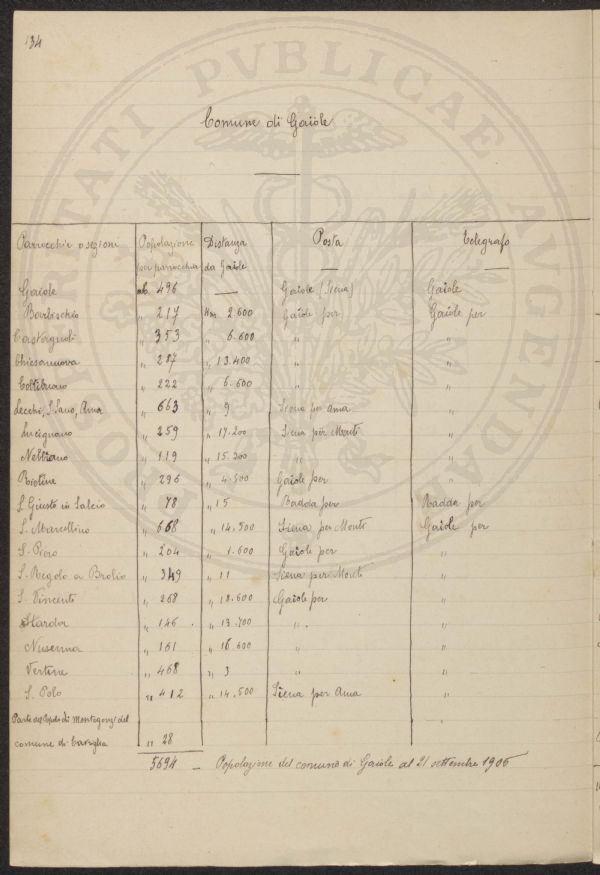 134
PVBLICAE
AVGENDAE
Comune di Gaiole
Parrocchie o sezioni Popolazione per parrocchia Distanza da Gaiole Posta Telegrafo
Gaiole ab. 496 — Gaiole (Siena) Gaiole
Barbischio " 217 Km. 2.600 Gaiole per Gaiole per
Castagnoli " 353 " 6.600 " "
Chiesanuova " 287 " 13.400 " "
Coltibuono " 222 " 6.600 " "
Lecchi, S. Sano, Ama " 663 " 9 Siena per Ama "
Lucignano " 259 " 17.200 Siena per Monti "
Nebbiano " 119 " 15.200 " "
Rietine " 296 " 4.500 Gaiole per "
S. Giusto in Salcio " 78 " 15 Radda per Radda per
S. Marcellino " 668 " 14.500 Siena per Monti Gaiole per
S. Piero " 204 " 1.600 Gaiole per "
S. Regolo a Brolio " 349 " 11 Siena per Monti "
S. Vincenti " 268 " 18.600 Gaiole per "
Starda " 146 " 13.700 " "
Nusenna " 161 " 16.600 " "
Vertine " 468 " 3 " "
S. Polo " 412 " 14.500 Siena per Ama "
Parte del Popolo di Montegonzi del "
comune di Cavriglia " 28
5694 — Popolazione del comune di Gaiole al 21 settembre 1906